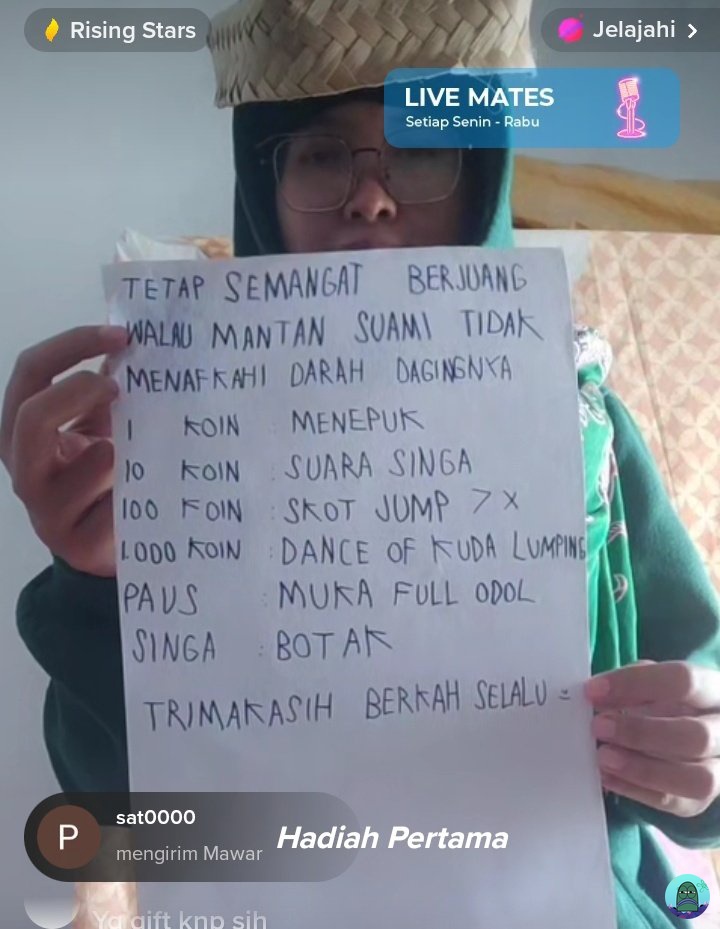 Rising Stars
Jelajahi
LIVE MATES
Setiap Senin - Rabu
TETAP SEMANGAT BERJUANG
WALAU MANTAN SUAMI TIDAK
MENAFKAHI DARAH DAGINGNYA
1 KOIN : MENEPUK
10 KOIN : SUARA SINGA
100 KOIN : SKOT JUMP 7 X
1.000 KOIN : DANCE OF KUDA LUMPING
PAUS : MUKA FULL ODOL
SINGA : BOTAK
TRIMAKASIH BERKAH SELALU
P
sat0000
mengirim Mawar
Hadiah Pertama
Yg gift knp sih